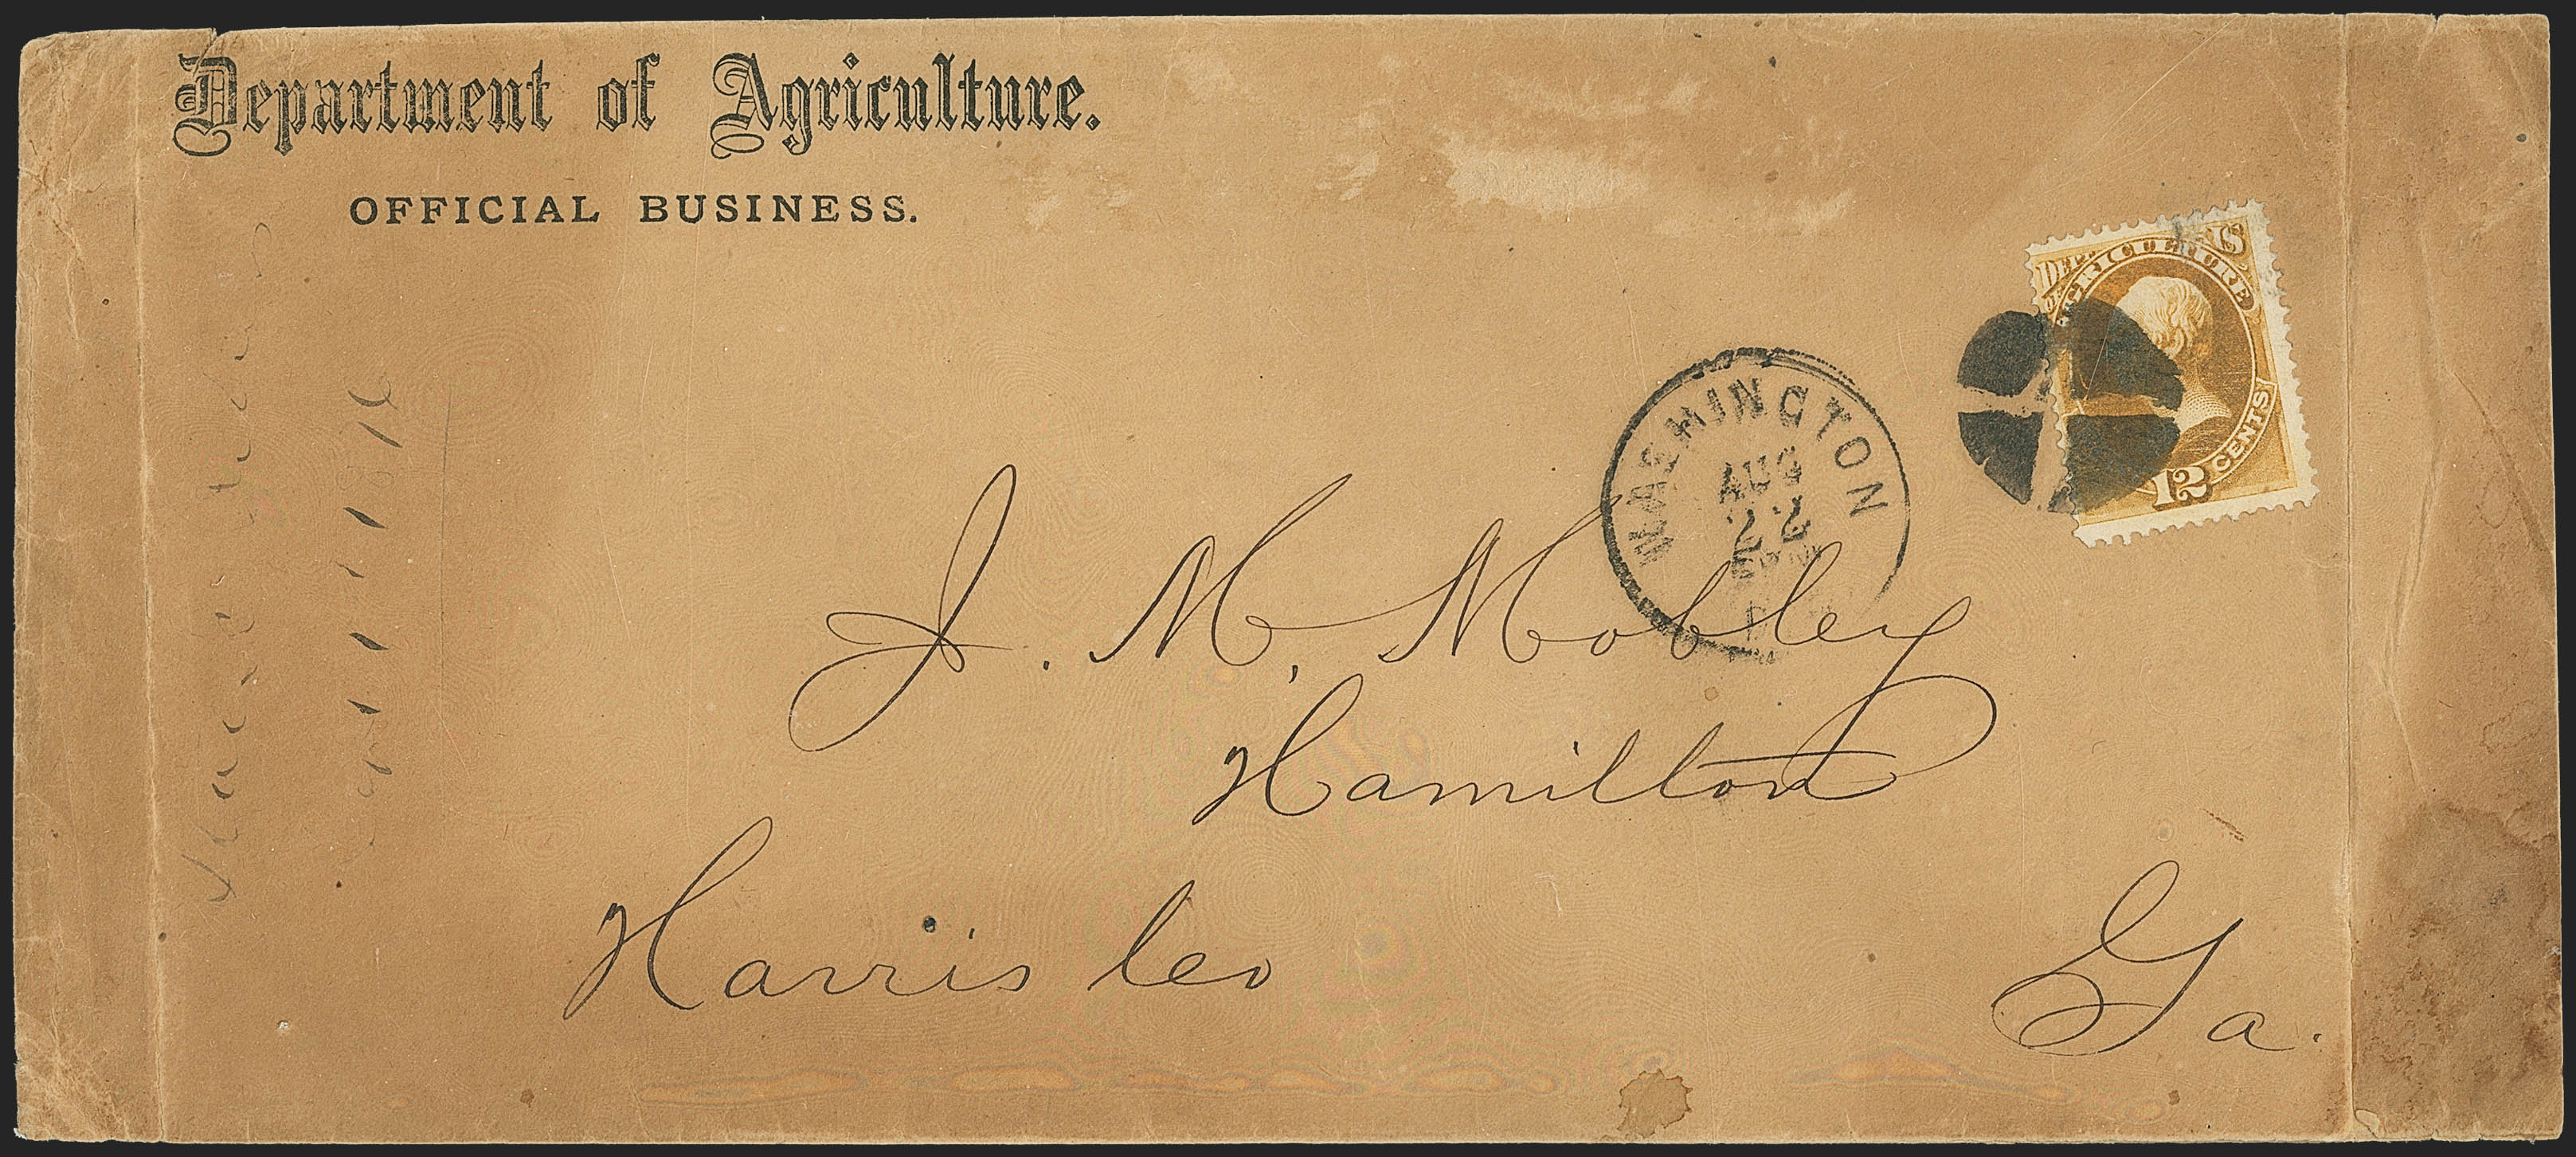 Department of Agriculture.
OFFICIAL BUSINESS.
DEPT. OF AGRICULTURE U.S.
12 CENTS
WASHINGTON
AUG
22
J. M. Mobley
Hamilton
Harris Co
Ga.